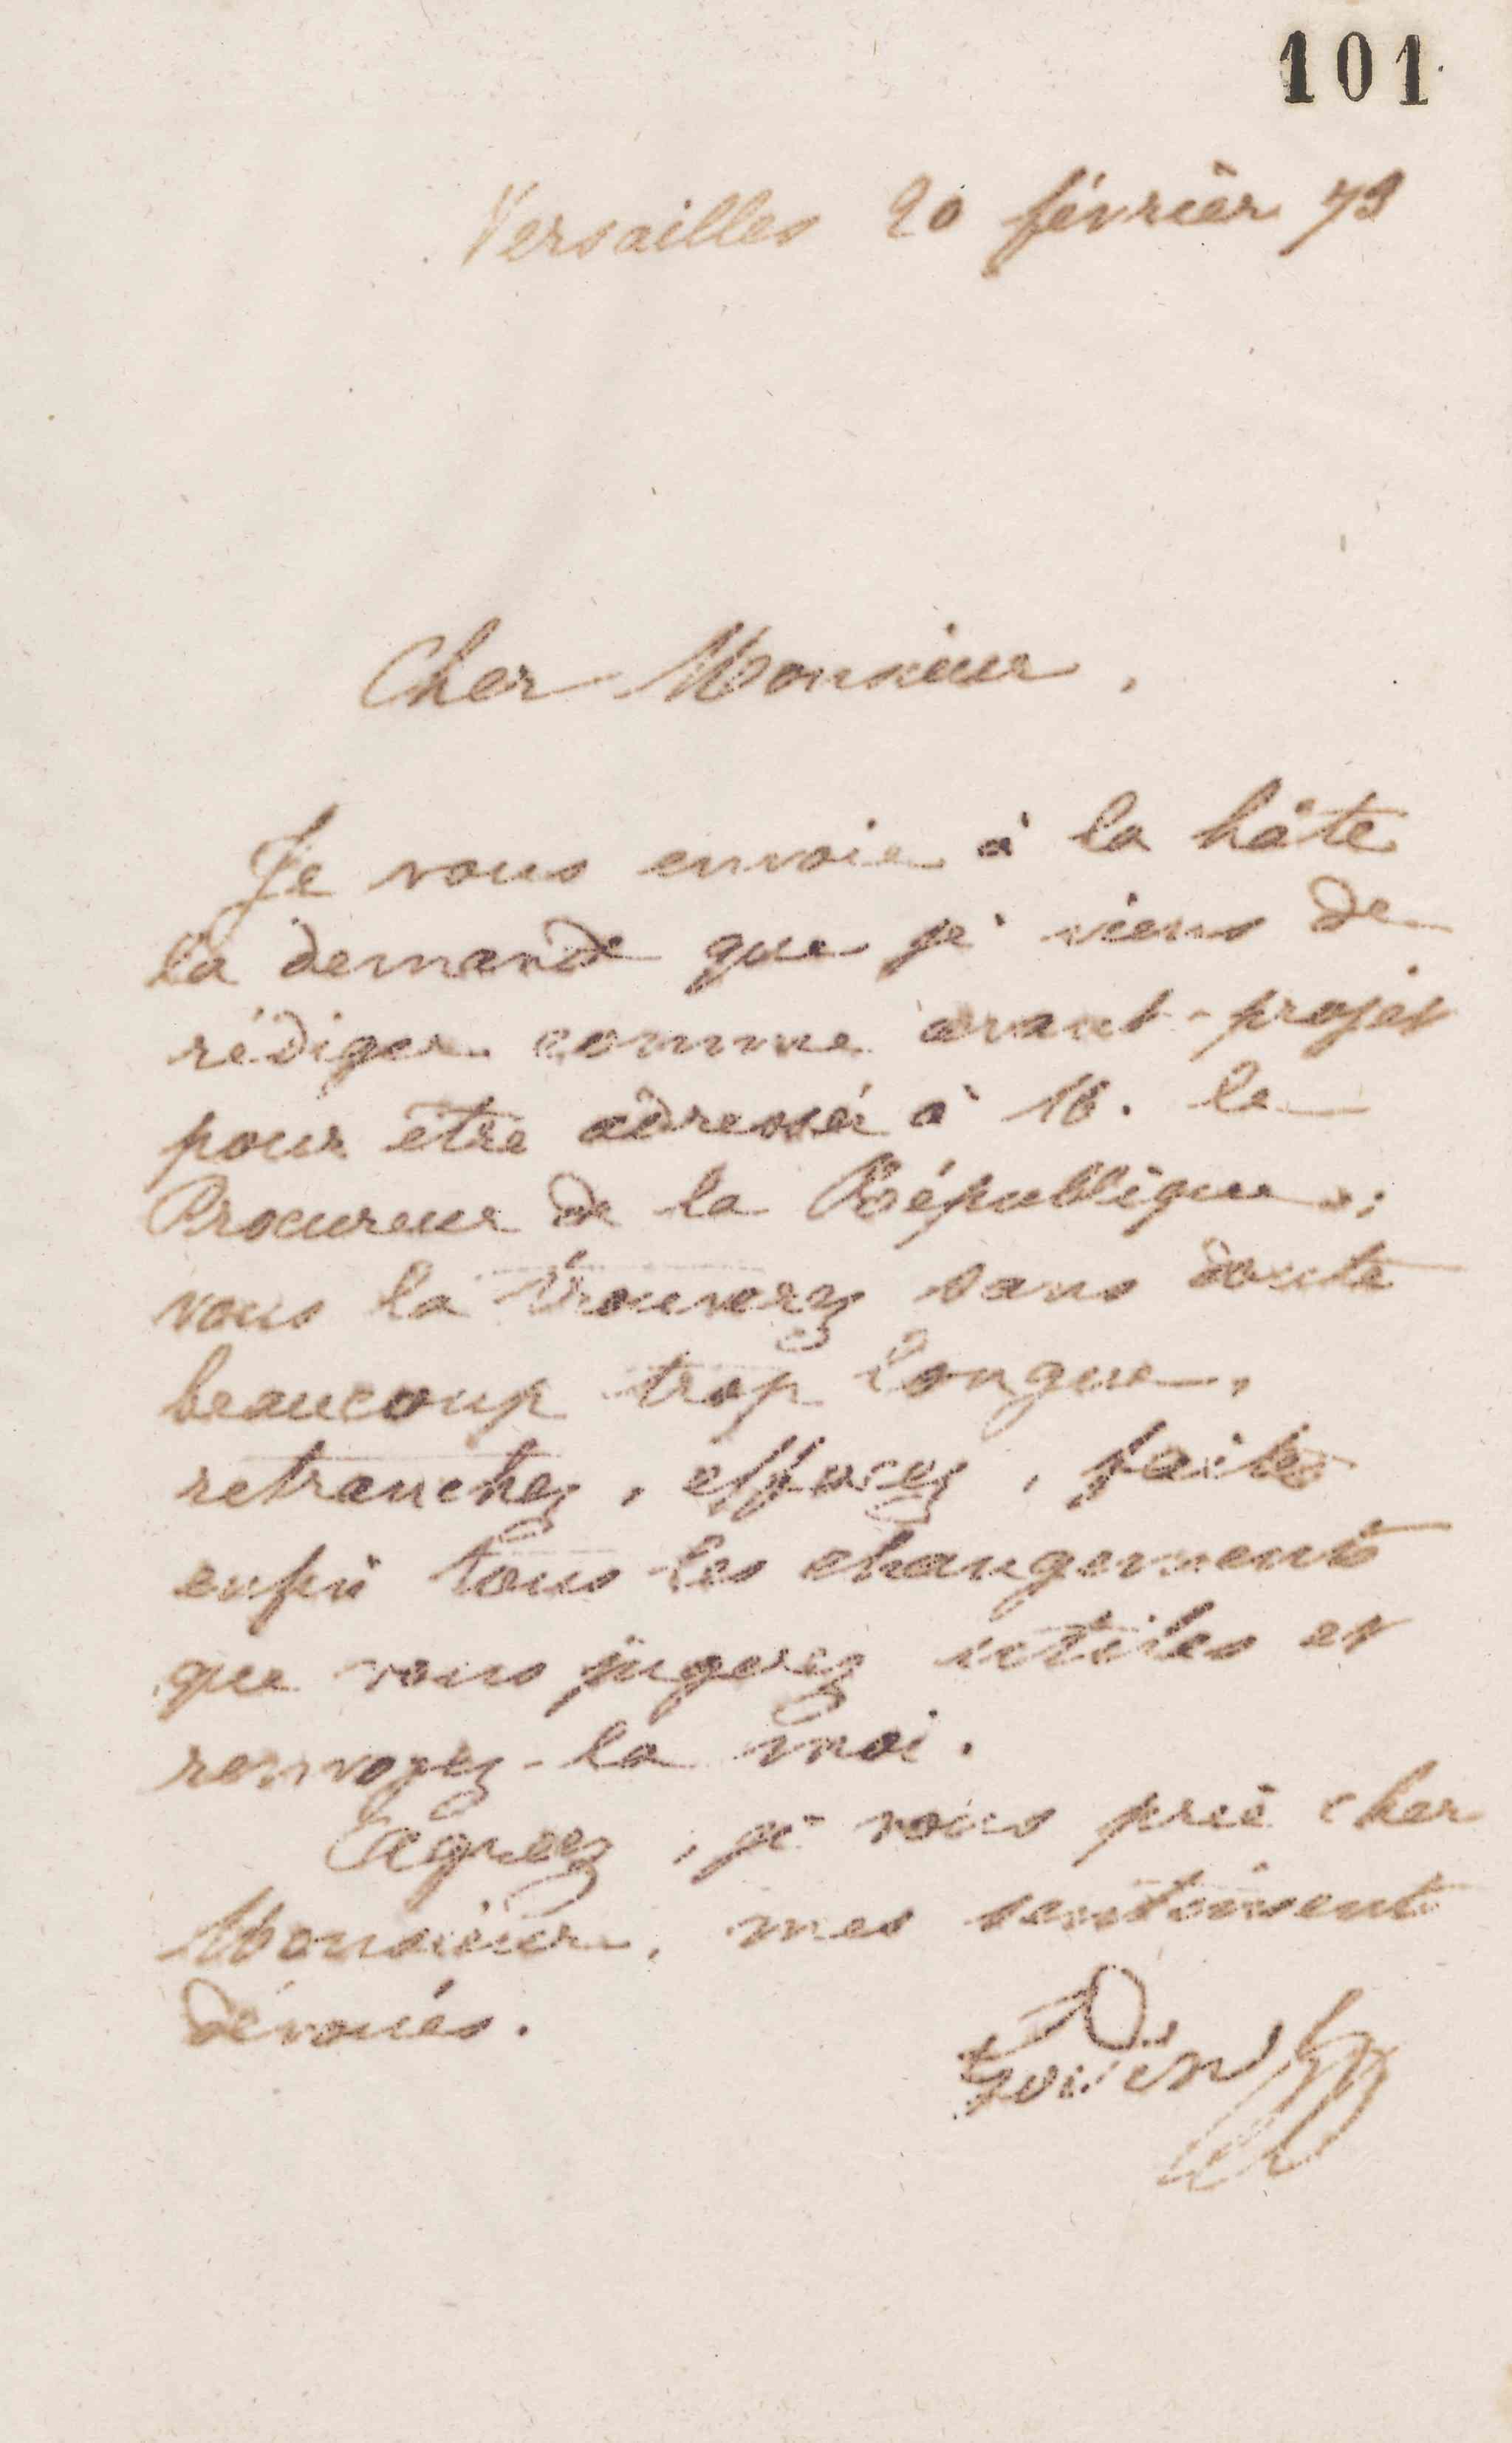 101
Versailles 20 février 73
Cher Monsieur,
Je vous envoie à la hâte
la demande que je viens de
rédiger comme avant-projet
pour être adressée à M. le
Procureur de la République;
vous la trouverez sans doute
beaucoup trop longue,
retranchez, effacez, faites
enfin tous les changements
que vous jugerez utiles et
renvoyez-la moi.
Agréez, je vous prie cher
Monsieur, mes sentiments
dévoués.
Godin